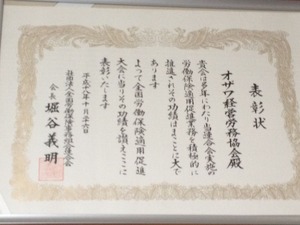 表彰状
オザワ経営労務協会殿
貴会は多年にわたり当連合会実施の
労働保険適用促進業務を積極的に
推進されその功績はまことに大で
あります
よって全国労働保険適用促進
大会に当りその功績を讃えここに
表彰いたします
平成十八年十月二十六日
社団法人全国労働保険事務組合連合会
会長 堀谷義明